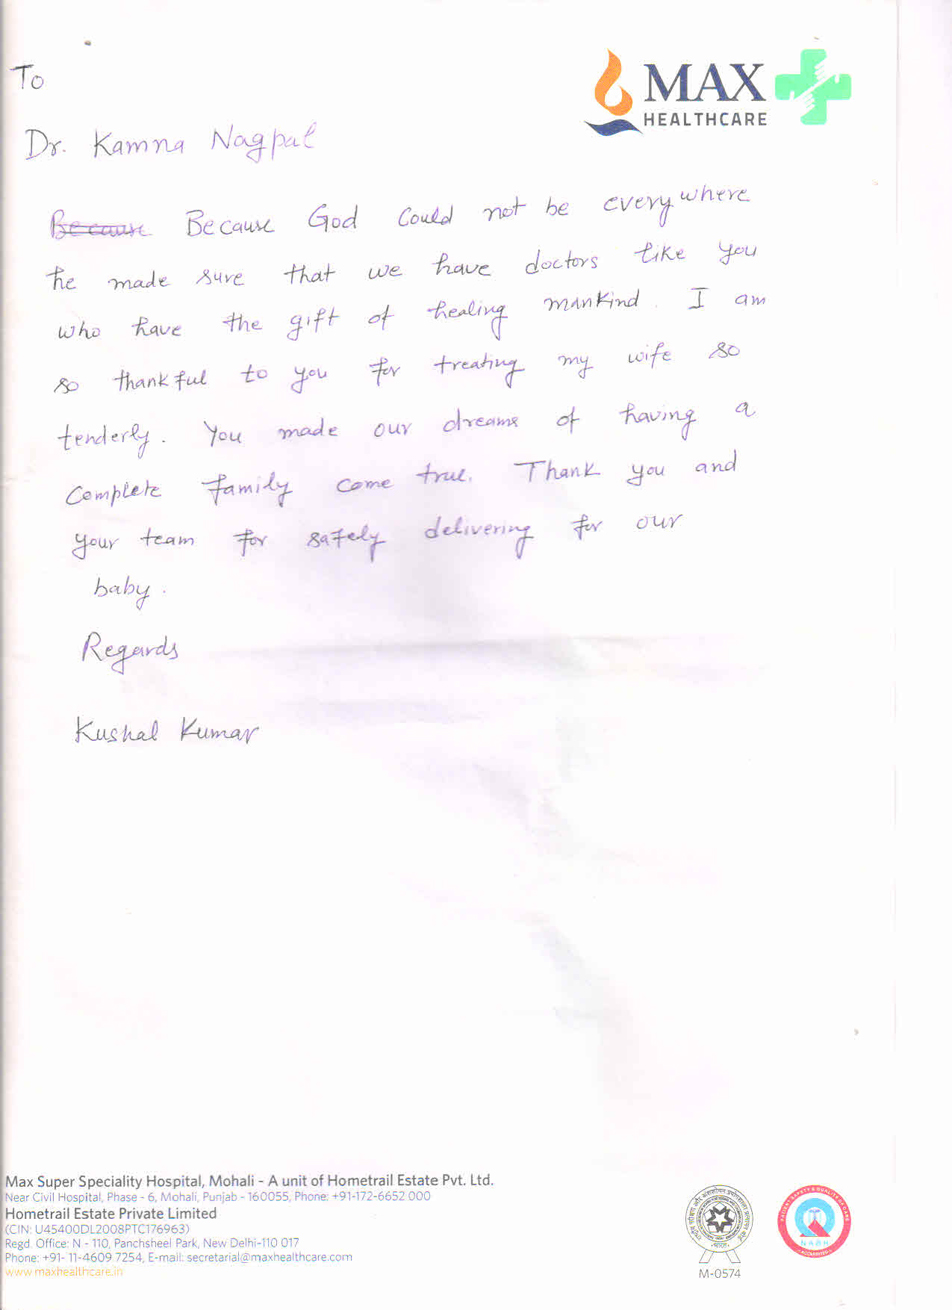 To
MAX
HEALTHCARE
Dr. Kamna Nagpal
Because Because God Could not be everywhere
he made sure that we have doctors like you
who have the gift of healing mankind. I am
so thankful to you for treating my wife so
tenderly. You made our dreams of having a
Complete family come true. Thank you and
your team for safely delivering for our
baby.
Regards
Kushal Kumar
Max Super Speciality Hospital, Mohali - A unit of Hometrail Estate Pvt. Ltd.
Near Civil Hospital, Phase - 6, Mohali, Punjab - 160055, Phone: +91-172-6652 000
Hometrail Estate Private Limited
(CIN: U45400DL2008PTC176963)
Regd. Office: N - 110, Panchsheel Park, New Delhi-110 017
Phone: +91- 11-4609 7254, E-mail: secretarial@maxhealthcare.com
www.maxhealthcare.in
M-0574
NABH
ACCREDITED